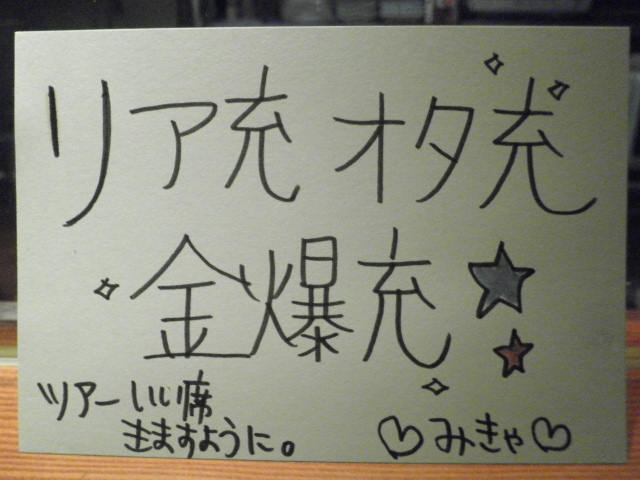 リア充 オタ充
金爆充
ツアーいい席
きますように。
♡みきゃ♡